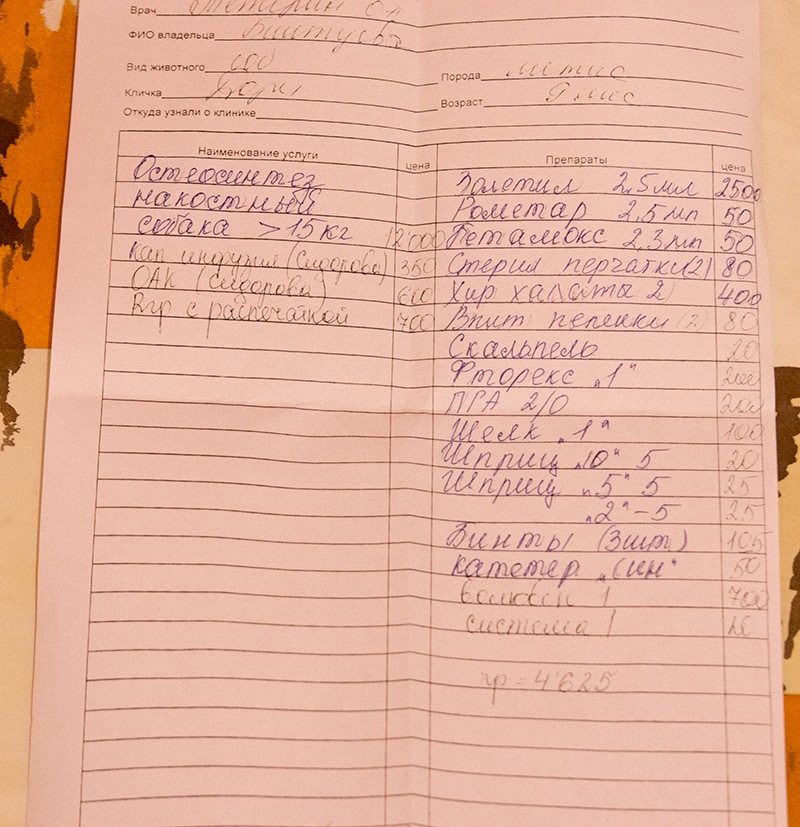 Врач
ФИО владельца
Вид животного соб
Порода метис
Кличка
Возраст 9 мес
Откуда узнали о клинике
Наименование услуги цена Препараты цена
Остеосинтез
накостный
собака >15 кг 12'000
Кап инфузия (Сидорова) 350
ОАК (Сидорова) 600
Rгр с распечаткой 700
Золетил 2,5 мл 2500
Рометар 2,5 мл 50
Бетамокс 2,3 мл 50
Стерил перчатки (2) 80
Хир халаты 2 400
Впит пеленки (2) 80
Скальпель 20
Фторекс „1" 200
ПГА 2/0 200
Шелк „1" 100
Шприц „10" 5 20
Шприц „5" 5 25
„2" - 5 25
Бинты (3шт) 105
Катетер „син" 50
волювен 1 700
система 1 20
пр = 4'625